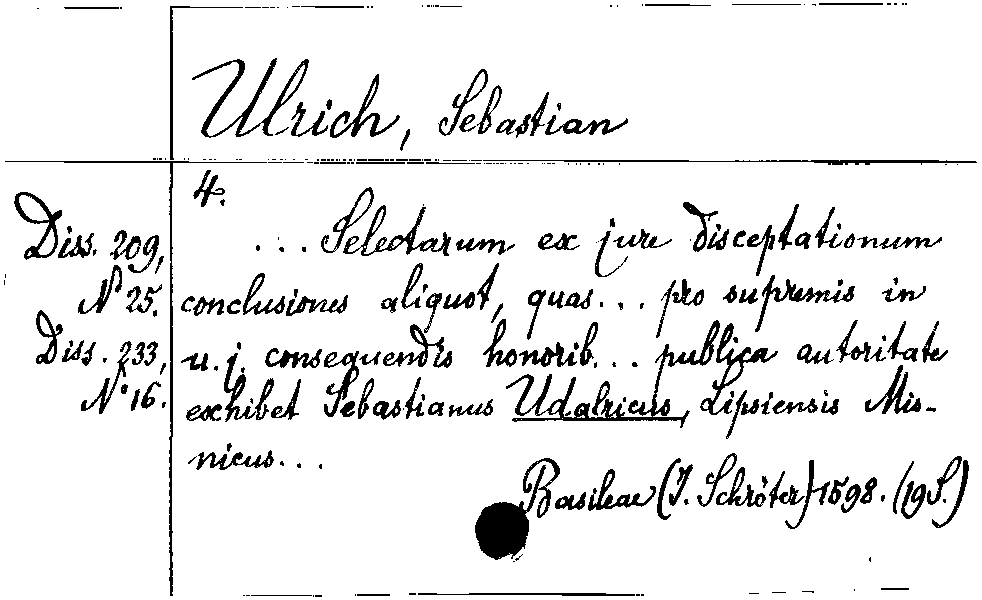 Ulrich, Sebastian
4.
Diss. 209,
N° 25.
Diss. 233,
N° 16.
... Selectarum ex jure disceptationum
conclusiones aliquot, quas... pro supremis in
u. j. consequendis honorib... publica autoritate
exhibet Sebastianus Udalricus, Lipsiensis Mis-
nicus...
Basileae (J. Schröter) 1598. (19 S.)